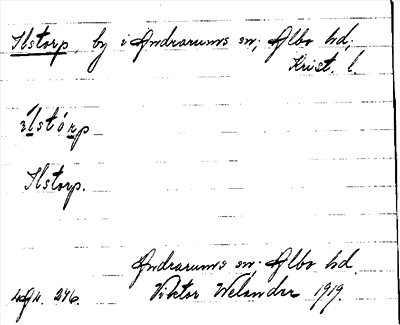 Ilstorp, by i Andrarums sn, Albo hd,
Krist. l.
ìlstórp
Ilstorp.
Andrarums sn, Albo hd
246. Viktor Welander 1919.